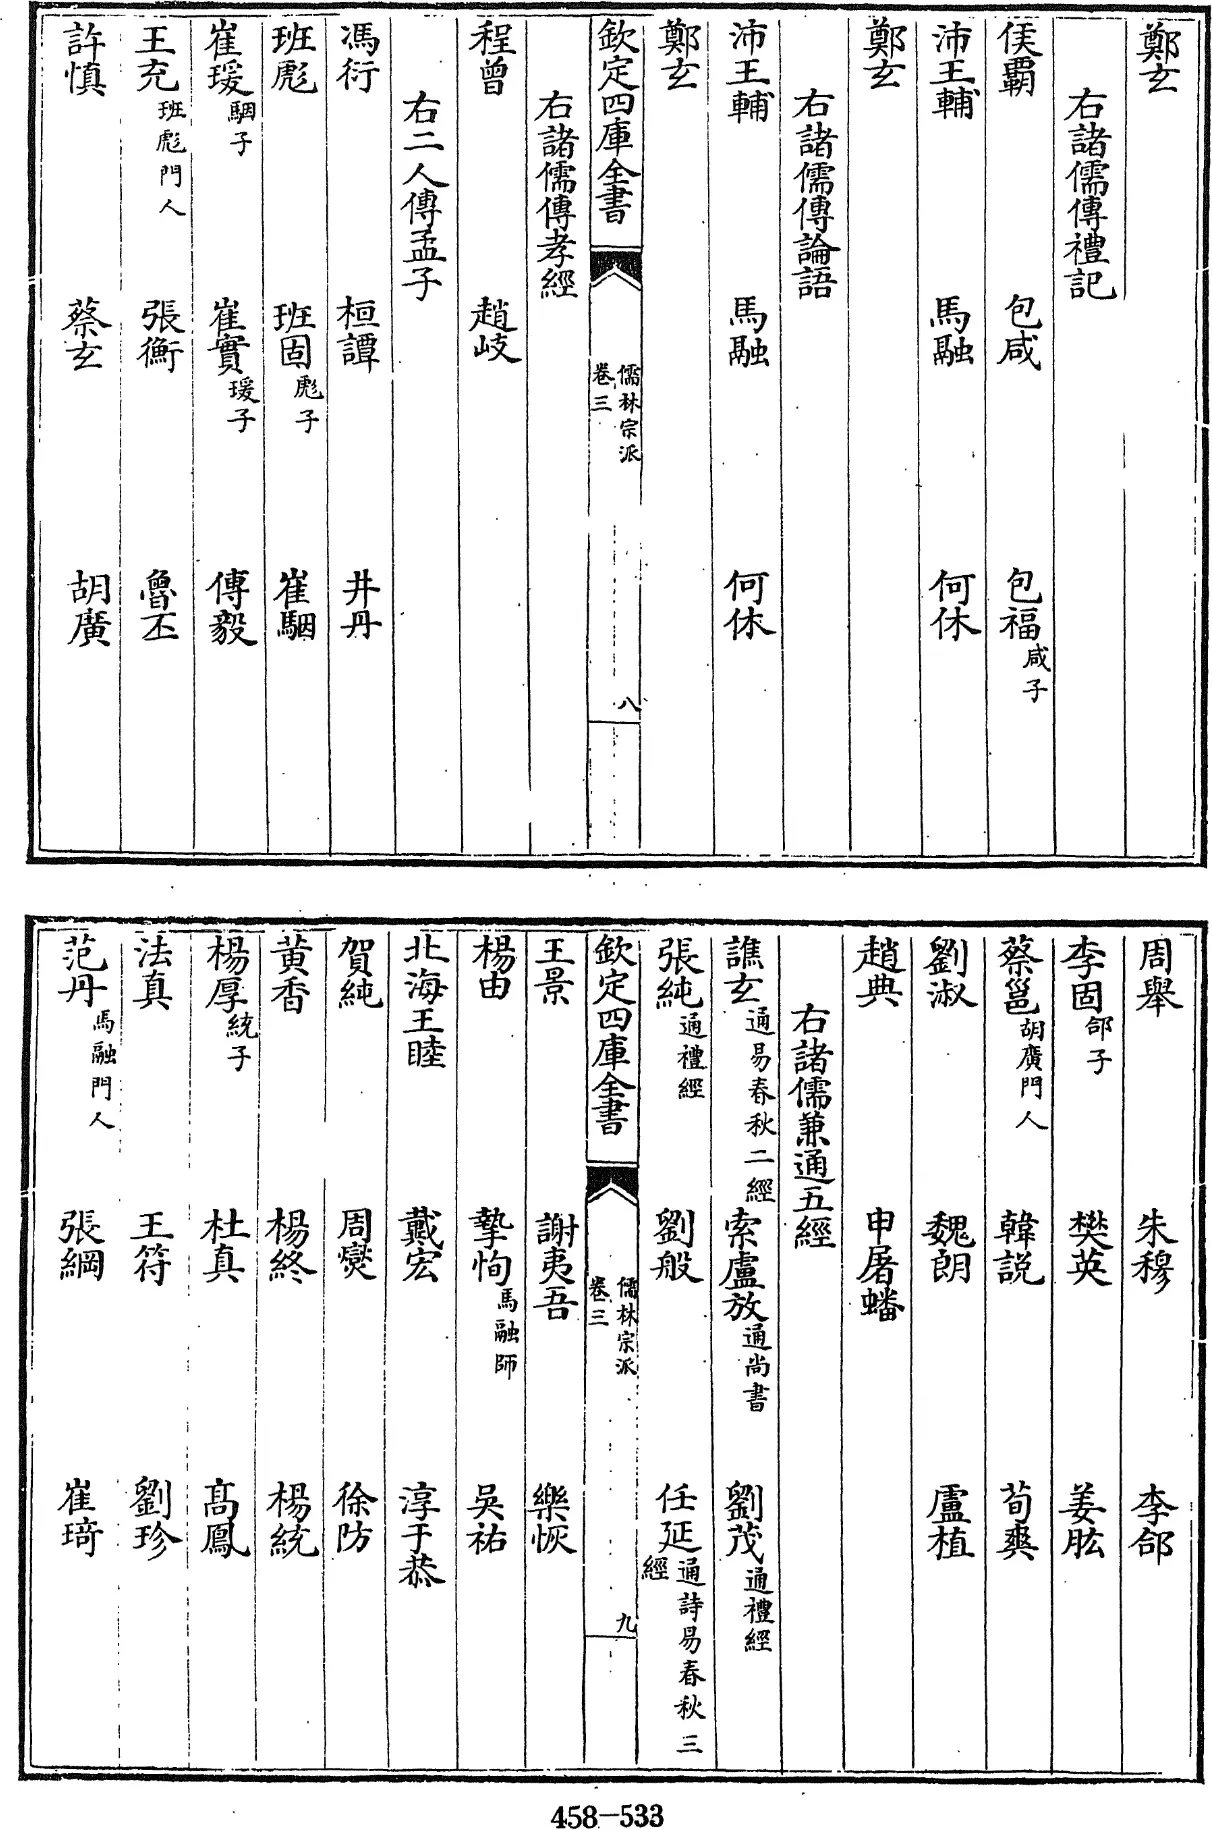 鄭玄
右諸儒傳禮記
侯霸 包咸 包福咸子
沛王輔 馬融 何休
鄭玄
右諸儒傳論語
沛王輔 馬融 何休
鄭玄
欽定四庫全書 儒林宗派 卷三 八
右諸儒傳孝經
程曾 趙岐
右二人傳孟子
馮衍 桓譚 井丹
班彪 班固彪子 崔駰
崔瑗駰子 崔實瑗子 傅毅
王充班彪門人 張衡 魯丕
許慎 蔡玄 胡廣
周舉 朱穆 李郃
李固郃子 樊英 姜肱
蔡邕胡廣門人 韓説 荀爽
劉淑 魏朗 盧植
趙典 申屠蟠
右諸儒兼通五經
譙玄通易春秋二經 索盧放通尚書 劉茂通禮經
張純通禮經 劉般 任延通詩易春秋三經
欽定四庫全書 儒林宗派 卷三 九
王景 謝夷吾 樂恢
楊由 摯恂馬融師 吳祐
北海王睦 戴宏 淳于恭
賀純 周燮 徐防
黃香 楊終 楊統
楊厚統子 杜真 高鳳
法真 王符 劉珍
范丹馬融門人 張綱 崔琦
458-533